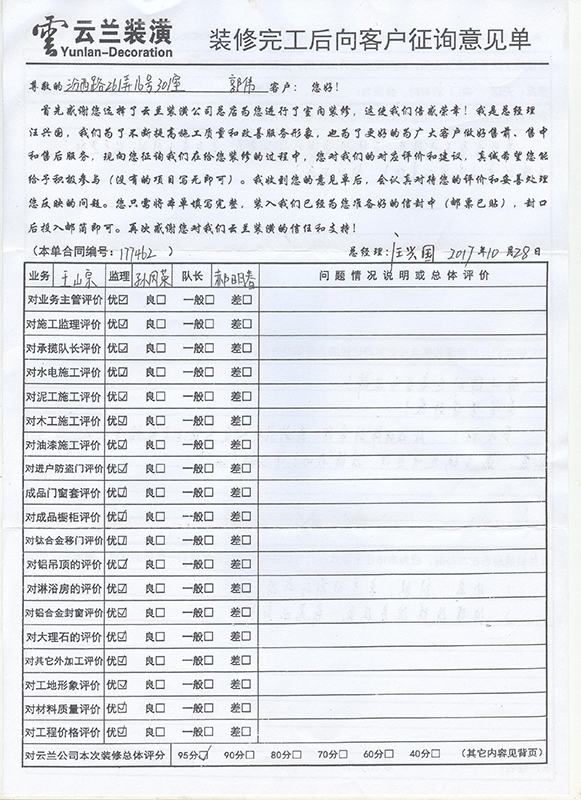 雲 云兰装潢
Yunlan-Decoration
装修完工后向客户征询意见单
尊敬的 沪西路261弄16号301室 郭伟 客户： 您好！
首先感谢您选择了云兰装潢公司总店为您进行了室内装修，这使我们倍感荣幸！我是总经理
汪兴国，我们为了不断提高施工质量和改善服务形象，也为了更好的为广大客户做好售前、售中
和售后服务，现向您征询我们在给您装修的过程中，您对我们的对发评价和建议，真诚希望您能
给予积极参与（没有的项目写无即可）。我收到您的意见单后，会认真对待您的评价和妥善处理
您反映的问题。您只需将本单填写完整，装入我们已经为您准备好的信封中（邮票已贴），封口
后投入邮筒即可。再次感谢您对我们云兰装潢的信任和支持！
（本单合同编号：177462 ） 总经理：汪兴国 2017年10月28日
业务 王山宗 监理 孙风英 队长 郝明春 问题情况说明或总体评价
对业务主管评价 优☑ 良☐ 一般☐ 差☐
对施工监理评价 优☑ 良☐ 一般☐ 差☐
对承揽队长评价 优☑ 良☐ 一般☐ 差☐
对水电施工评价 优☑ 良☐ 一般☐ 差☐
对泥工施工评价 优☑ 良☐ 一般☐ 差☐
对木工施工评价 优☑ 良☐ 一般☐ 差☐
对油漆施工评价 优☑ 良☐ 一般☐ 差☐
对进户防盗门评价 优☑ 良☐ 一般☐ 差☐
成品门窗套评价 优☑ 良☐ 一般☐ 差☐
对成品橱柜评价 优☑ 良☐ 一般☐ 差☐
对钛合金移门评价 优☑ 良☐ 一般☐ 差☐
对铝吊顶的评价 优☑ 良☐ 一般☐ 差☐
对淋浴房的评价 优☑ 良☐ 一般☐ 差☐
对铝合金封窗评价 优☑ 良☐ 一般☐ 差☐
对大理石的评价 优☑ 良☐ 一般☐ 差☐
对其它外加工评价 优☑ 良☐ 一般☐ 差☐
对工地形象评价 优☑ 良☐ 一般☐ 差☐
对材料质量评价 优☑ 良☐ 一般☐ 差☐
对工程价格评价 优☑ 良☐ 一般☐ 差☐
对云兰公司本次装修总体评分 95分☑ 90分☐ 80分☐ 70分☐ 60分☐ 40分☐ （其它内容见背页）